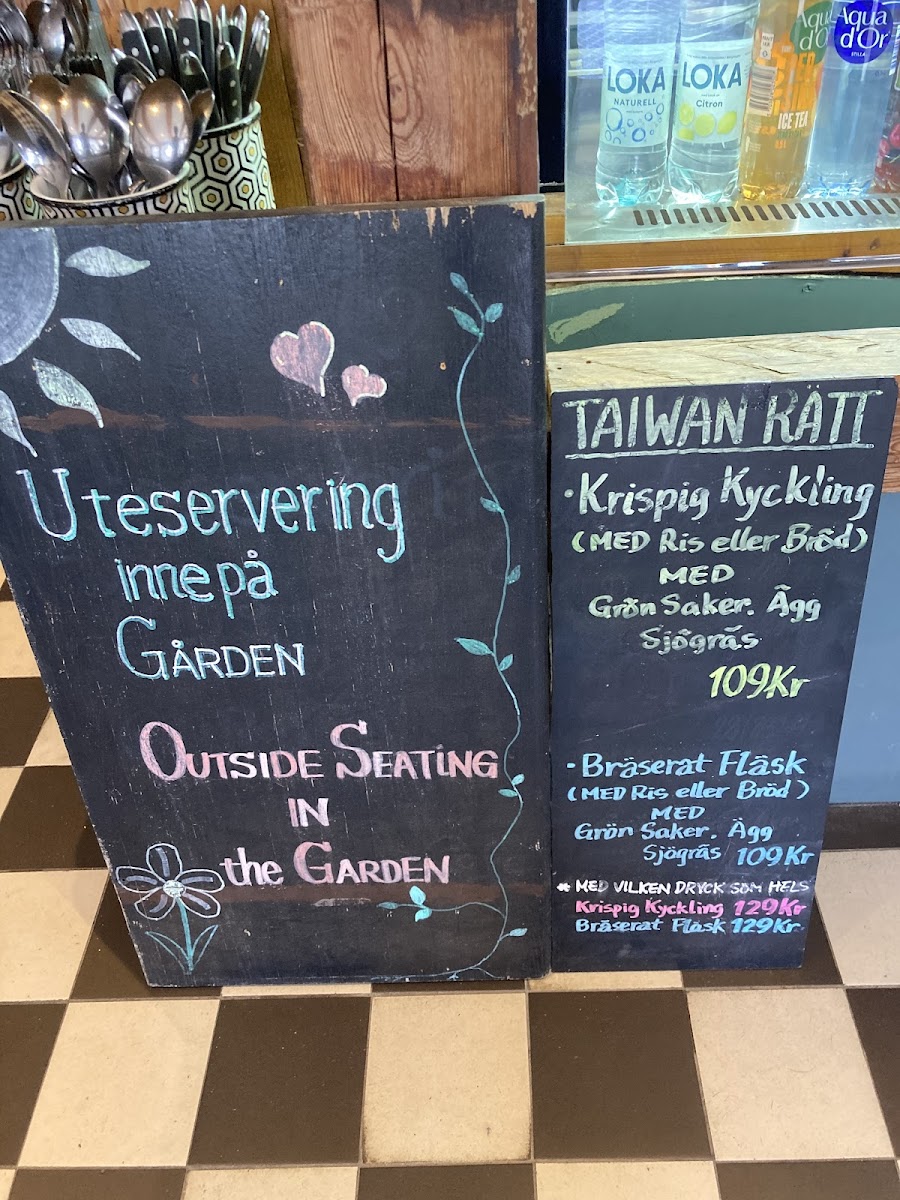 LOKA
NATURELL
LOKA
Citron
ICE TEA
Aqua
d'Or
STILLA
Uteservering
inne på
GÅRDEN
OUTSIDE SEATING
IN
the GARDEN
TAIWAN RÄTT
• Krispig Kyckling
(MED Ris eller Bröd)
MED
Grön Saker. Ägg
Sjögräs
109Kr
• Bräserat Fläsk
(MED Ris eller Bröd)
MED
Grön Saker. Ägg
Sjögräs 109Kr
* MED VILKEN DRYCK SOM HELS
Krispig Kyckling 129Kr
Bräserat Fläsk 129Kr.